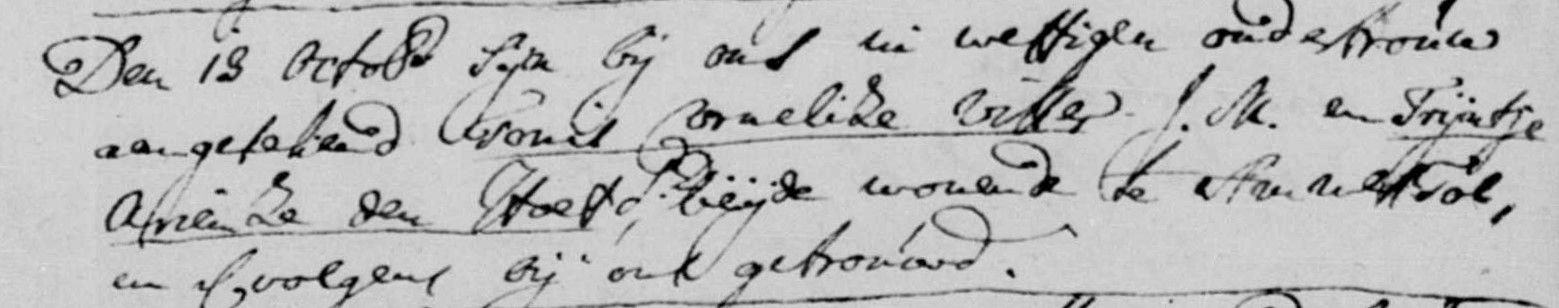 Den 13 octob sijn bij ons in wettigen ondertrouw
aengetekend Teunis Cornelisze Visser J. M. en Trijntje
Ariensze den Hoet, beijde wonende te Ammerstol,
en vervolgens bij ons getrouwd.